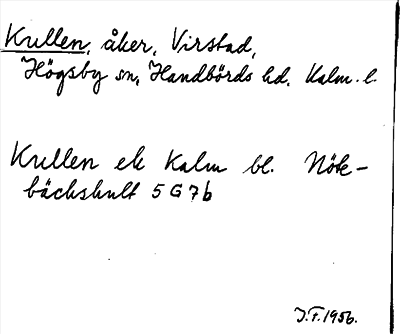 Kullen, åker, Virstad,
Högsby sn, Handbörds hd. Kalm. l.
Kullen ek Kalm bl. Nök-
bäckshult 5 G 7 b
J.F. 1956.